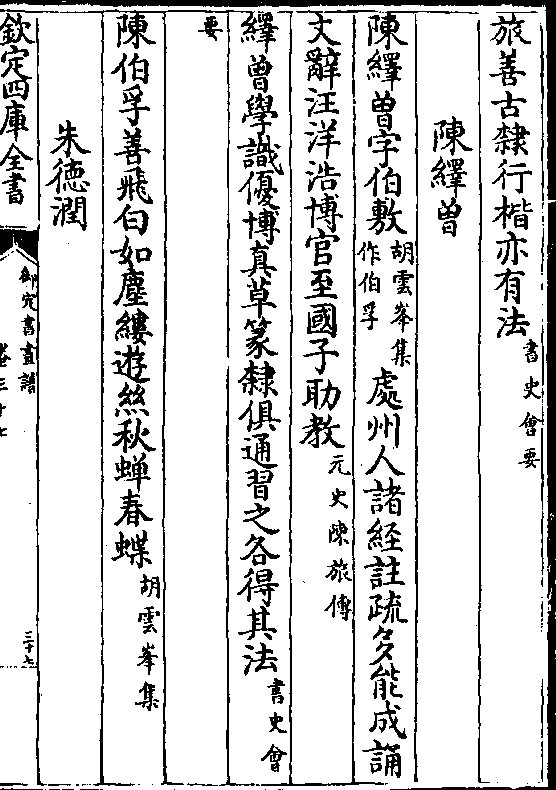 旅善古隸行楷亦有法書史會要
陳繹曽
陳繹曽字伯敷胡雲峯集作伯孚處州人諸經註疏多能成誦
文辭汪洋浩博官至國子助教元史陳旅傳
繹曽學識優博真草篆隸俱通習之各得其法書史會
要
陳伯孚善飛白如塵縷遊絲秋蟬春蝶胡雲峯集
朱德潤
欽定四庫全書
御定書畫譜
卷三十七
三十七